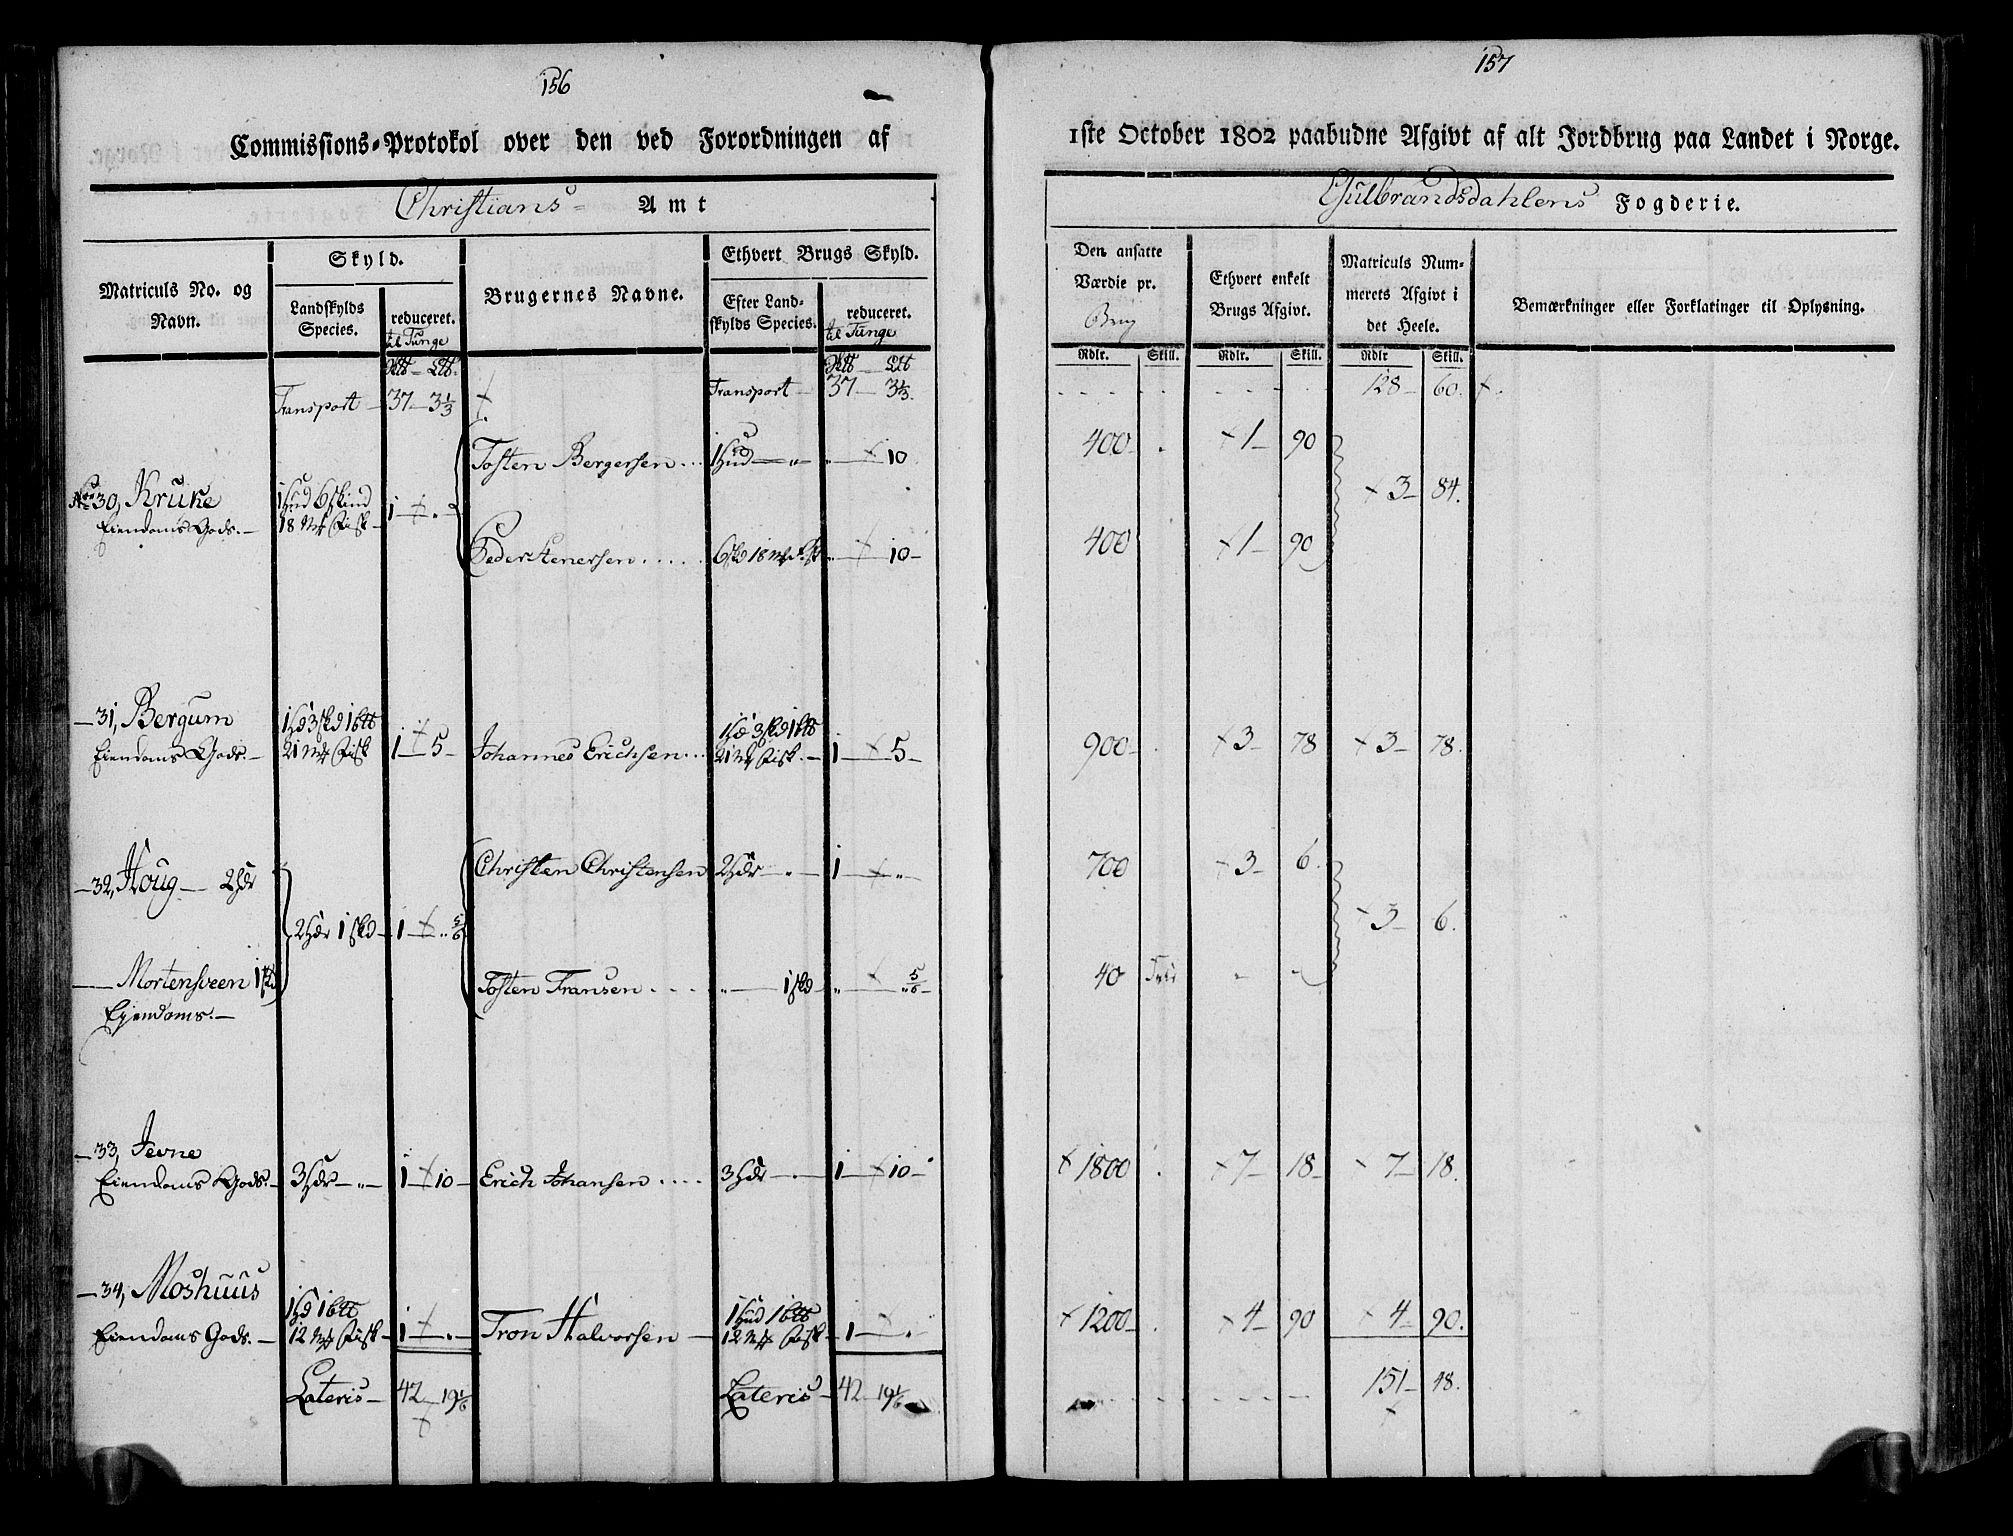 156
Commissions-Protokol over den ved Forordningen af
Christians- Amt
Matriculs No. og Navn.
Skyld.
Landskylds Species.
reduceret.
til Tunge
Brugernes Navne.
Ethvert Brugs Skyld.
Efter Land-
skylds Species.
reduceret.
til Tunge
Transport 37 - 3 1/3 Transport 37 3 1/3.
Tosten Bergersen... 1 Hud — „ „ — 10
No 30, Kruke 1 Hud 6 Skind 1 - „
Eiendoms Gods. 18 Mk Fisk
Peder Stenersen ..... 6 skd 18 mk Fisk „ — 10 -
— 31, Bergum 1 Hd 3 skd 1 btt 1 Hd 3 skd 1 btt
Eiendoms Gods. — 21 Mk Fisk 1 - 5 - Johannes Erichsen... 21 Mk Fisk. — 1 — 5 -
Christen Christensen 2 Hdr — „ — 1 — „ -
— 32, Houg — 2 Hdr
2 Hdr 1 skd — 1 - „ 5/6
— Mortensveen 1 skd Tosten Fransen .... „ — 1 skd „ — „ 5/6 -
Ejendoms. —
— 33, Jevne
Eiendoms Gods. — 3 Hdr — „ — 1 - 10 - Erich Johansen .... 3 Hdr — . — 1 — 10 -
— 34, Moshuus 1 Hd 1 btt 1 Hud 1 btt
Eiendoms Gods. — 12 Mk Fisk — 1 - „ - Tron Halvorsen — 12 Mk Fisk — 1 — „ -
Lateris — 42 - 19 1/6 Lateris — 42 - 19 1/6
157
1ste October 1802 paabudne Afgivt af alt Jordbrug paa Landet i Norge.
Gulbrandsdahlens Fogderie.
Den ansatte
Værdie pr.
Brug
Ethvert enkelt
Brugs Afgivt.
Matriculs Num-
merets Afgivt i
det Heele.
Bemærkninger eller Forklaringer til Oplysning.
Rdlr. Skill. Rdlr. Skill. Rdlr Skill.
128 - 60.
400 . 1 - 90
3 - 84.
400 1 - 90
900 - . 3 - 78 3 - 78.
700 3 - 6.
3 - 6.
40 - -
1800 . 7 - 18 - 7 - 18.
1200 - . 4 - 90 4 - 90.
151 - 48.